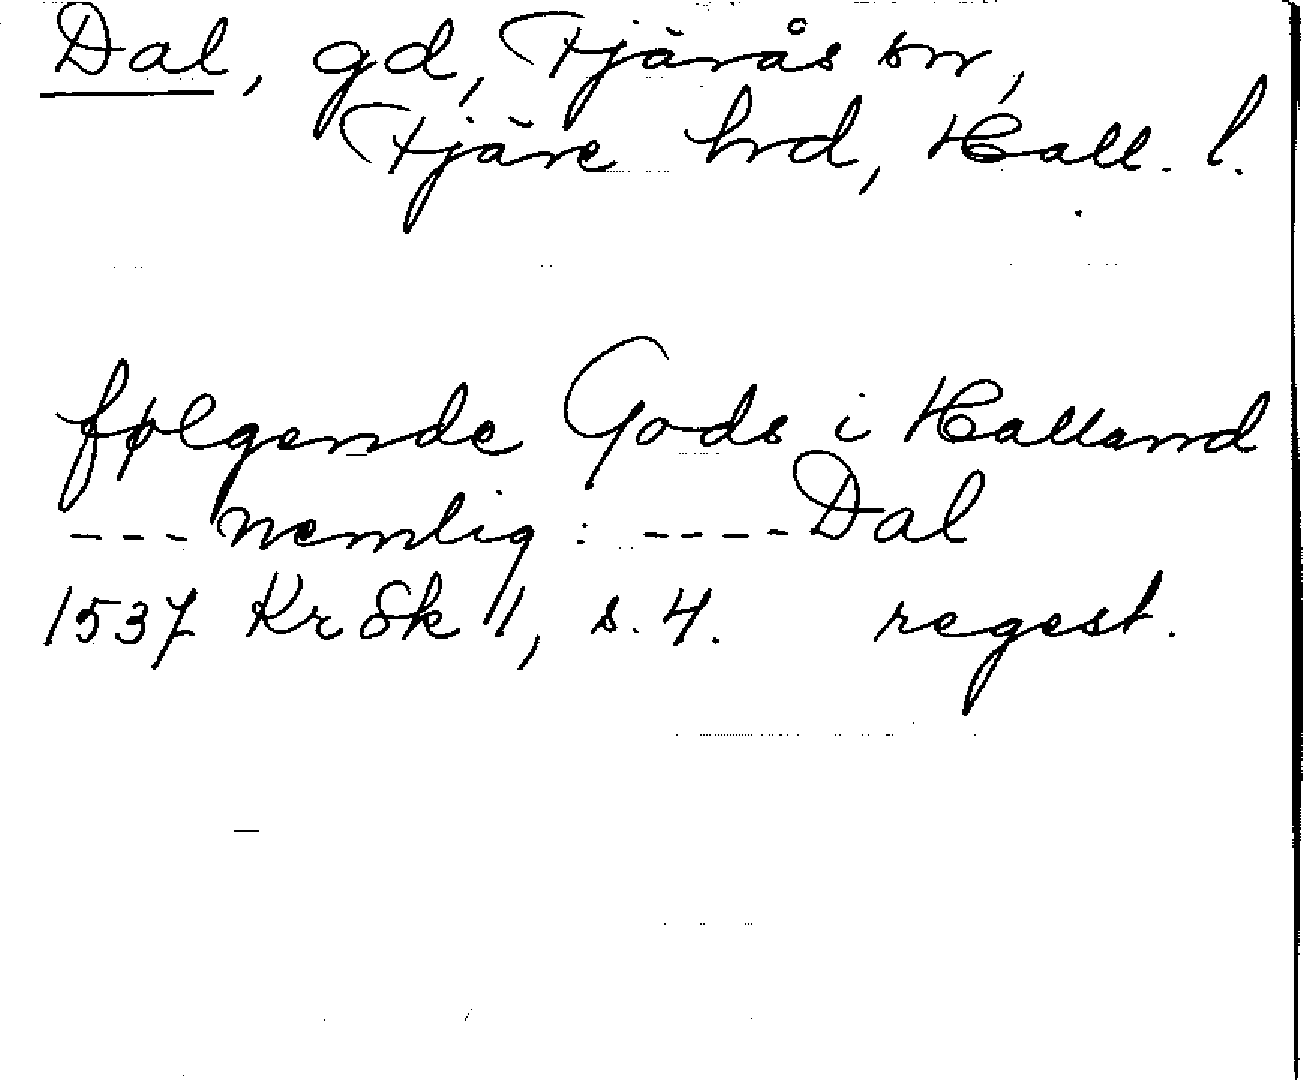 Dal, gd, Tjärås sn,
Fjäre hrd, Hall. l.
følgende Gods i Halland
--- nemlig: ---- Dal
1537 KrSk 11, s. 4. regest.